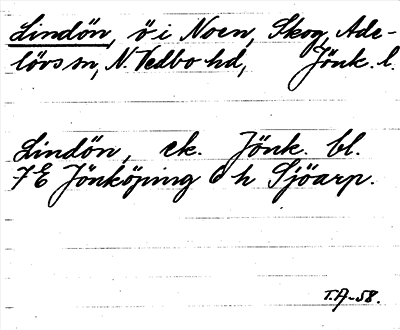 Lindön, ö i Noen, Skog, Ade-
lövs sn, N. Vedbo hd, Jönk. l.
Lindön, ek. Jönk. bl.
7 E Jönköping o h Sjöarp.
T.A-58.